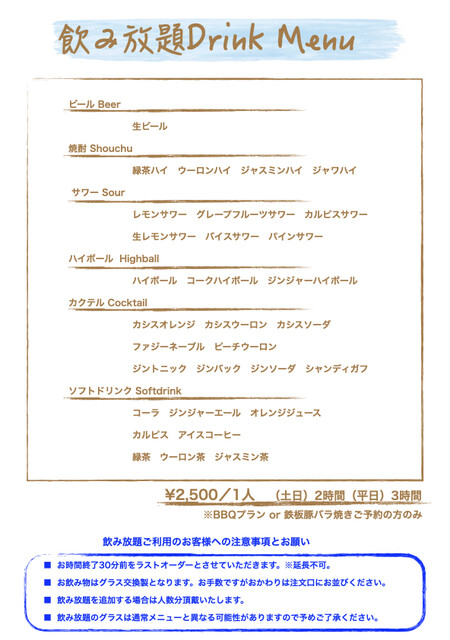 飲み放題Drink Menu
ビール Beer
生ビール
焼酎 Shouchu
緑茶ハイ ウーロンハイ ジャスミンハイ ジャワハイ
サワー Sour
レモンサワー グレープフルーツサワー カルピスサワー
生レモンサワー バイスサワー パインサワー
ハイボール Highball
ハイボール コークハイボール ジンジャーハイボール
カクテル Cocktail
カシスオレンジ カシスウーロン カシスソーダ
ファジーネーブル ピーチウーロン
ジントニック ジンバック ジンソーダ シャンディガフ
ソフトドリンク Softdrink
コーラ ジンジャーエール オレンジジュース
カルピス アイスコーヒー
緑茶 ウーロン茶 ジャスミン茶
¥2,500／1人 （土日）2時間（平日）3時間
※BBQプラン or 鉄板豚バラ焼きご予約の方のみ
飲み放題ご利用のお客様への注意事項とお願い
■ お時間終了30分前をラストオーダーとさせていただきます。※延長不可。
■ お飲み物はグラス交換製となります。お手数ですがおかわりは注文口にお並びください。
■ 飲み放題を追加する場合は人数分頂戴いたします。
■ 飲み放題のグラスは通常メニューと異なる可能性がありますので予めご了承ください。